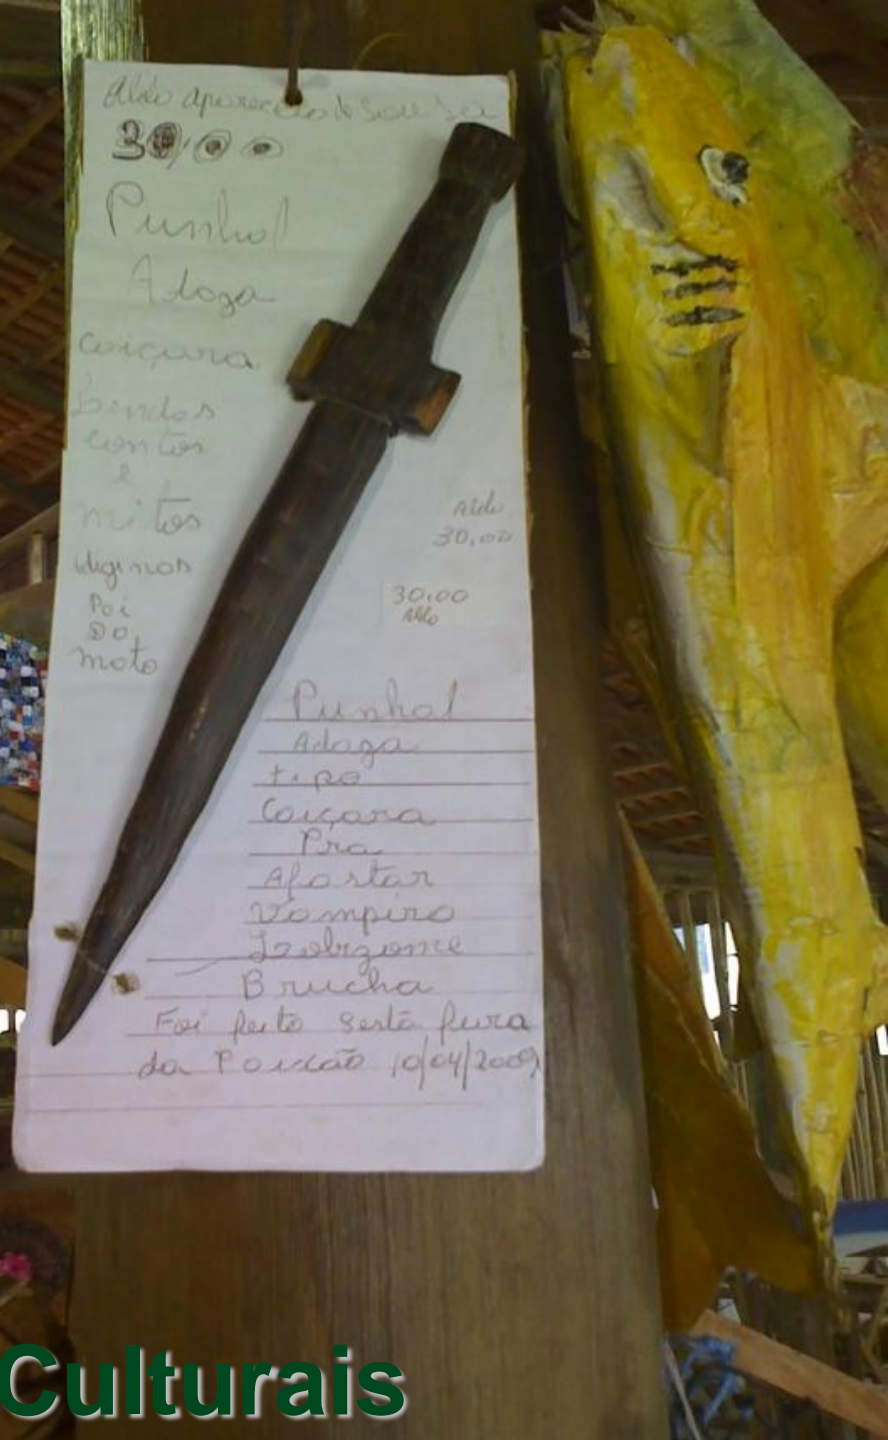 Aldo Aparecido de Sousa
30,00
Punhal
Adaga
Caiçara
lendas
contos
e
mitos
Aldo
30,00
30,00
Aldo
Poi
Do
moto
Punhal
Adaga
tipo
Caiçara
Pra
Afastar
Vampiro
Lobizome
Brucha
Foi feito Sesta feira
da Paixão 10/04/2009
Culturais